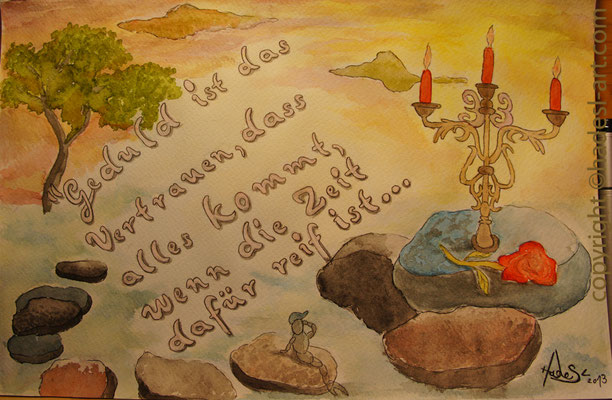 Geduld ist das
Vertrauen, dass
alles kommt,
wenn die Zeit
dafür reif ist...
HadeSL
2013
copyright ©hadesl-art.com